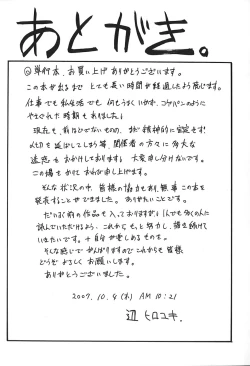 あとがき。
◎単行本、お買い上げありがとうございます。
この本が出るまでとても長い時間が経過したよう感じます。
仕事でも私生活でも何もうまくいかず、コッペパンのように
やさぐれた時期もありました!
現在も、前ほどでないものの、まだ精神的に安定せず
〆切を延ばしてしまう等、関係者の方々に多大な
迷惑をおかけしております! 大変申し分けないです。
この場をかりておわび申し上げます。
そんな状況の中、皆様の協力も有り、無事この本を
発表することができました。ありがたいことです。
だいぶ前の作品も入っておりますが、1人でも多くの人に
読んでいただけるよう、これからもっと努力し、描き続けて
いきたいです。+自分が楽しめるものを。
そんな感じでがんばりますのでこれからも皆様
どうぞよろしくお願いします。
ありがとうございました。
2007.10.4(木) AM 10:21
辺 ヒロユキ.